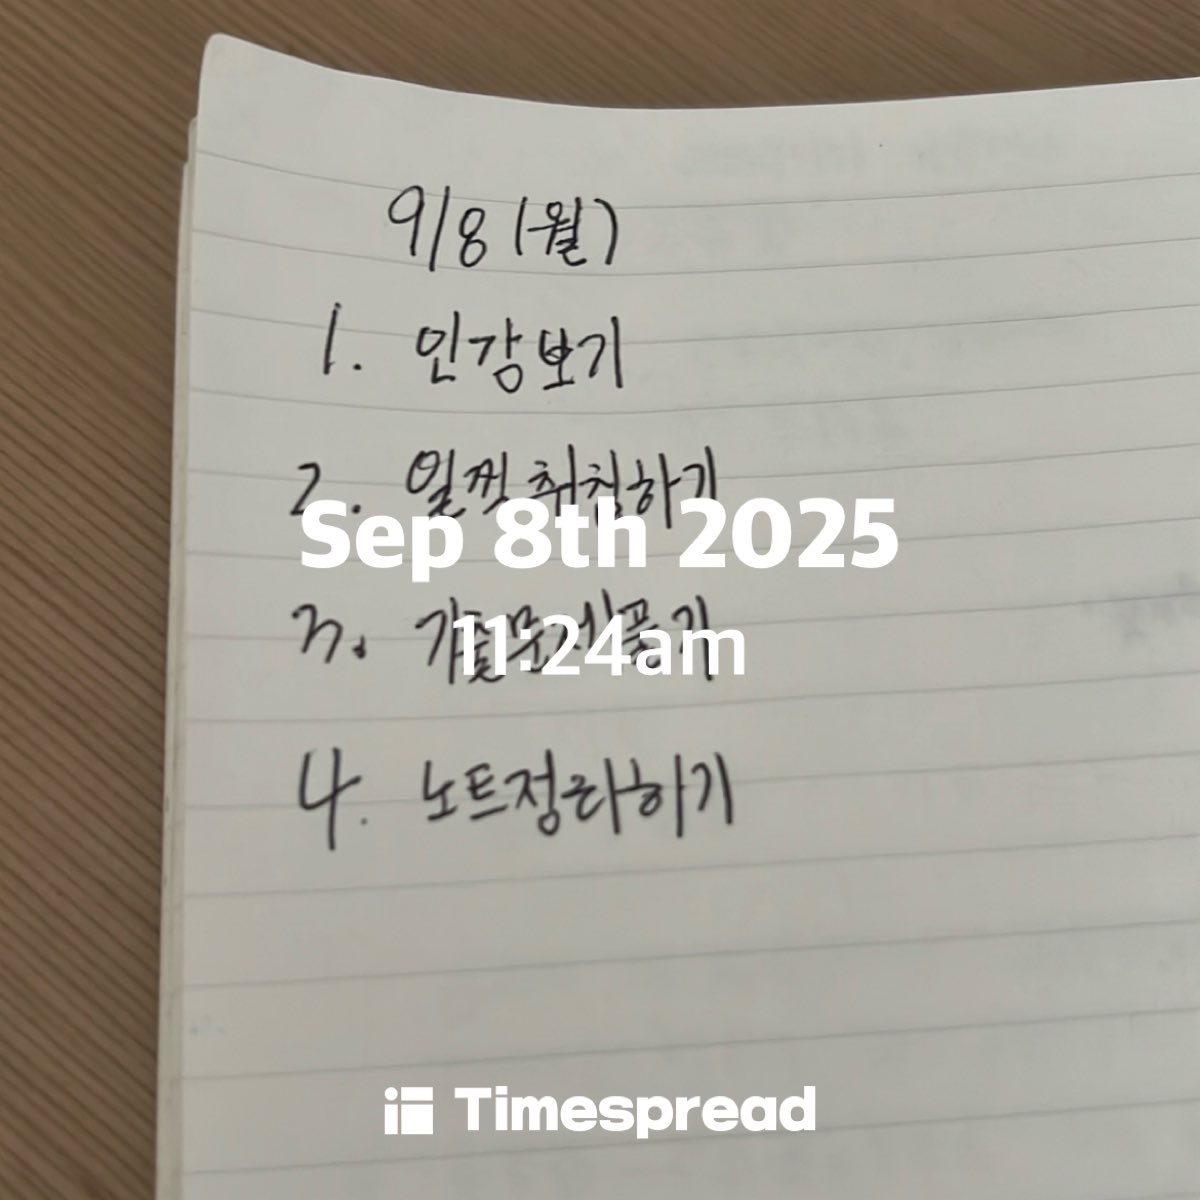 9/8 (월)
1. 인강보기
2. 일찍 취침하기
Sep 8th 2025
3. 기출문제풀기
11:24am
4. 노트정리하기
Timespread